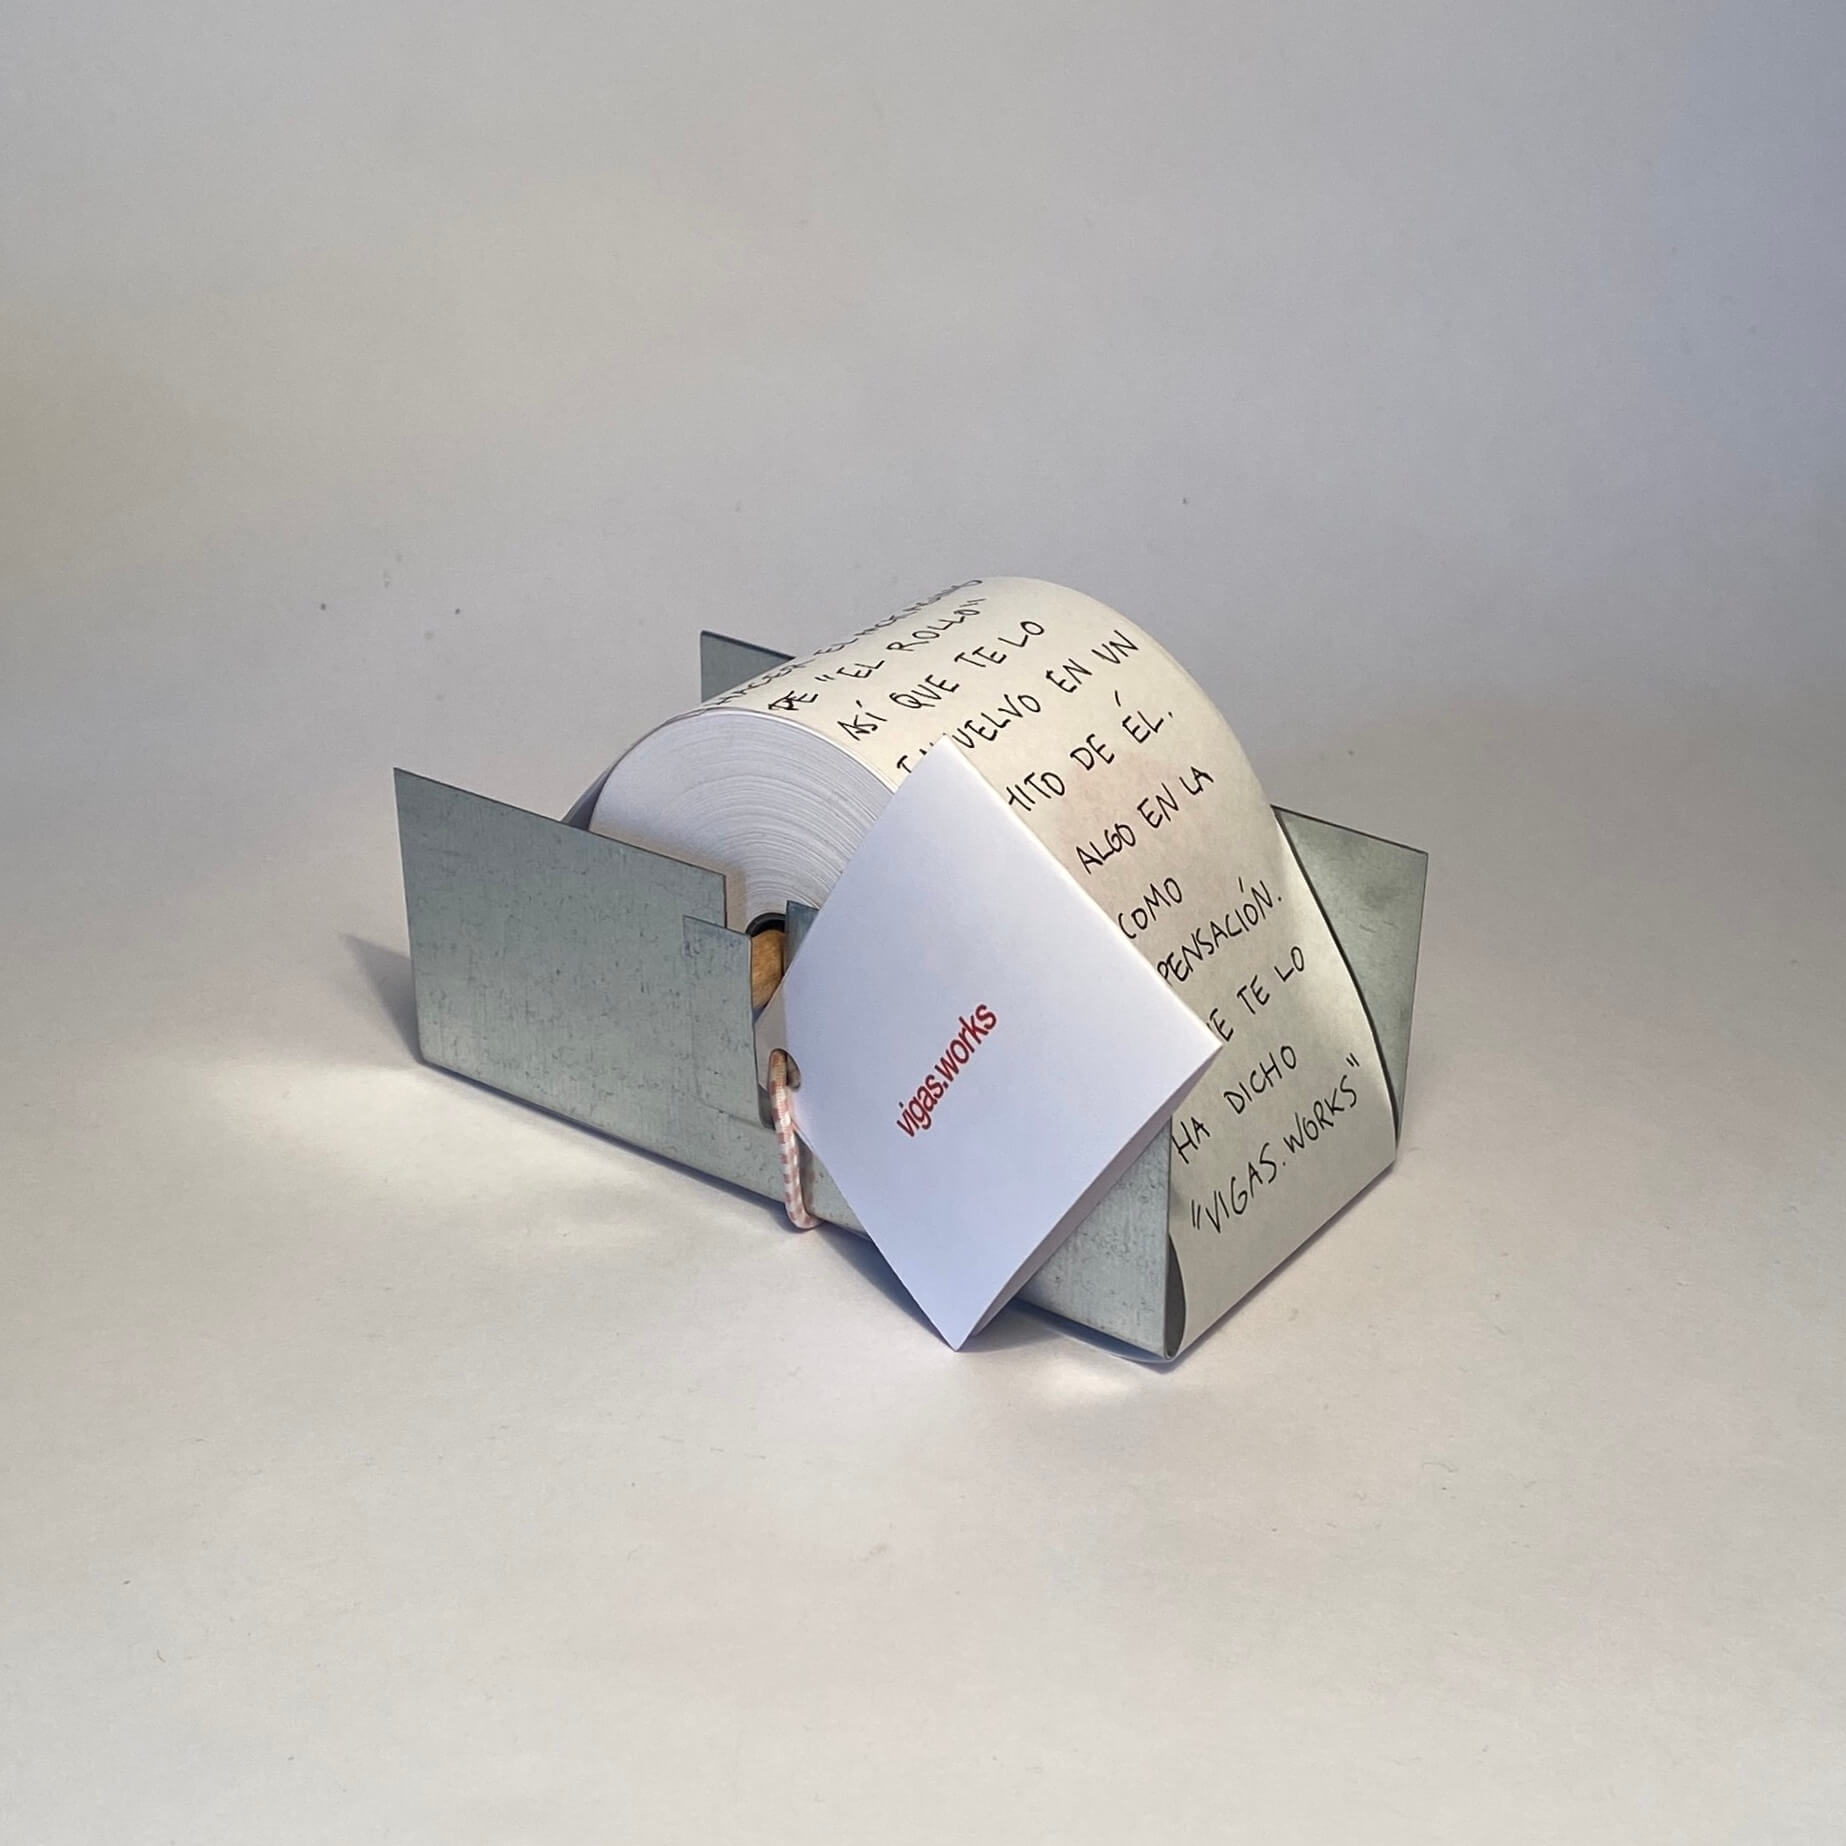 DE "EL ROLLO"
ASÍ QUE TE LO
EN UN
DE ÉL.
ALGO EN LA
COMO
PENSACIÓN.
TE LO
HA DICHO
"VIGAS.WORKS"
vigas.works